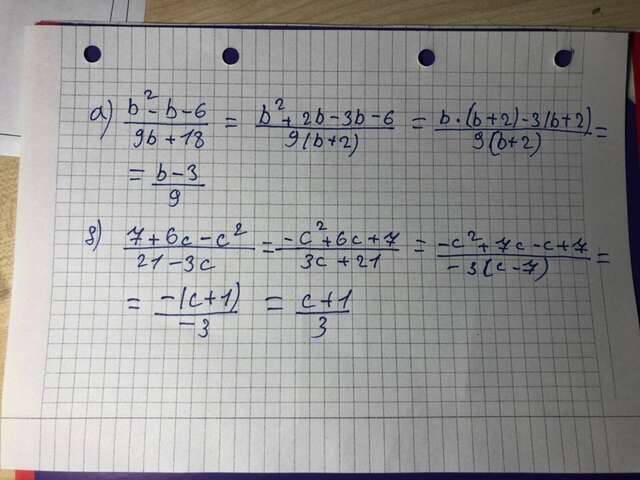 a) (b² - b - 6)/(9b + 18) = (b² + 2b - 3b - 6)/(9(b+2)) = (b·(b+2) - 3(b+2))/(9(b+2)) =
= (b - 3)/9
б) (7 + 6c - c²)/(21 - 3c) = (-c² + 6c + 7)/(3c + 21) = (-c² + 7c - c + 7)/(-3(c - 7)) =
= (-(c+1))/(-3) = (c+1)/3